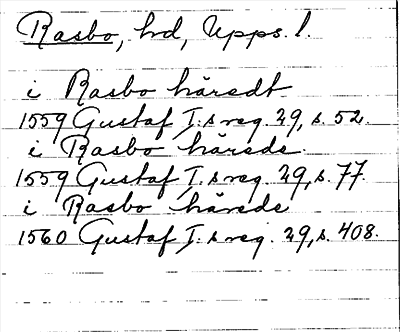 Rasbo, hd, Upps. l.
i Rasbo häredt
1559 Gustaf I:s reg. 29, s. 52.
i Rasbo härede
1559 Gustaf I:s reg. 29, s. 77.
i Rasbo härede
1560 Gustaf I:s reg. 29, s. 408.